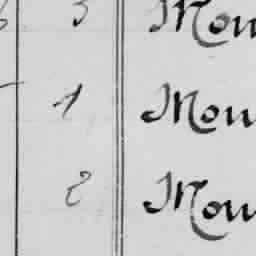 3 Mou
1 Mou
2 Mou